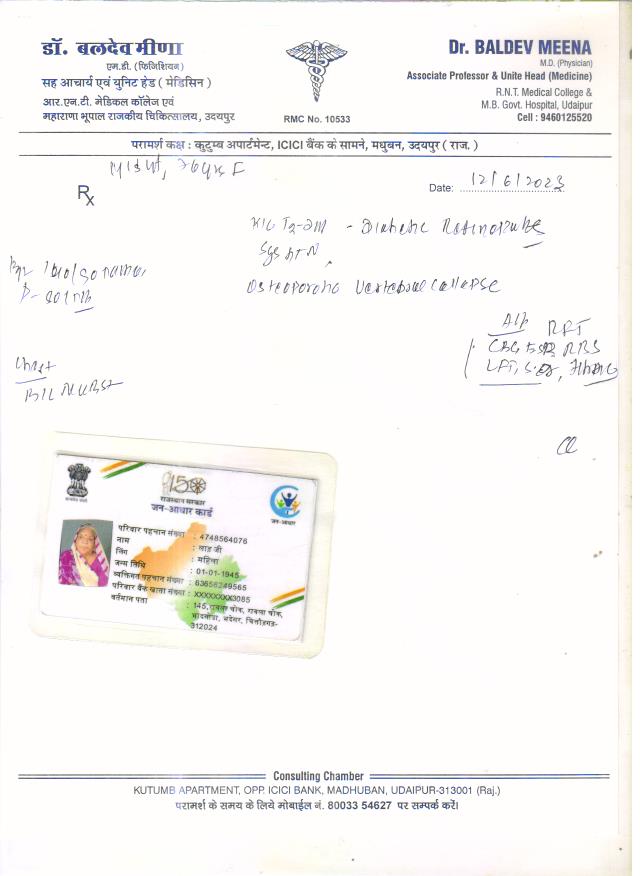 डॉ. बलदेव मीणा
एम.डी. (फिजिशियन)
सह आचार्य एवं युनिट हेड ( मेडिसिन )
आर.एन.टी. मेडिकल कॉलेज एवं
महाराणा भूपाल राजकीय चिकित्सालय, उदयपुर
RMC No. 10533
Dr. BALDEV MEENA
M.D. (Physician)
Associate Professor & Unite Head (Medicine)
R.N.T. Medical College &
M.B. Govt. Hospital, Udaipur
Cell : 9460125520
परामर्श कक्ष : कुटुम्ब अपार्टमेन्ट, ICICI बैंक के सामने, मधुबन, उदयपुर ( राज. )
Rx
Date: 12/6/2023
K/c T2-DM - Diabetic
Sys HTN
Vertebral collapse
RFT
RBS
150
राजस्थान सरकार
जन-आधार कार्ड
जन-आधार
परिवार पहचान संख्या : 4748564076
नाम : लाड जी
लिंग : महिला
जन्म तिथि : 01-01-1945
व्यक्तिगत पहचान संख्या : 63656249565
परिवार बैंक खाता संख्या : XXXXXXXX3085
वर्तमान पता : 145, रावला चौक, रावला चौक,
भदेसर, चित्तौड़गढ़-
312024
Consulting Chamber
KUTUMB APARTMENT, OPP. ICICI BANK, MADHUBAN, UDAIPUR-313001 (Raj.)
परामर्श के समय के लिये मोबाईल नं. 80033 54627 पर सम्पर्क करें।